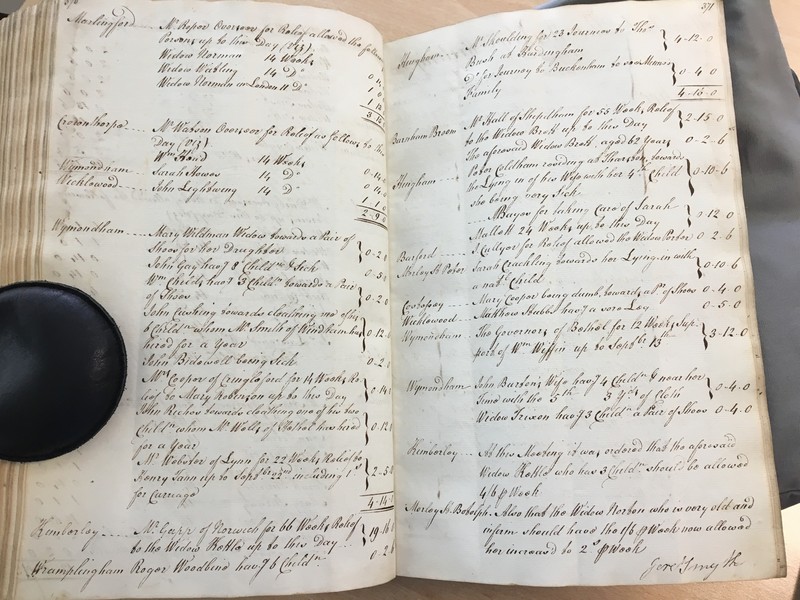 370
Marlingford Mr. Roper Overseer for Relief allowed the following
Persons up to this Day (viz)
Widow Norman 14 Weeks
Widow Watling 14 Do.
Widow Norman in London 11 Do.
Crownthorpe Mr. Watson Overseer for Relief as follows to this
Day (viz)
Wm. Hand 14 Weeks
Wymondham Sarah Howes 14 Do.
Wicklewood John Lightwing 14 Do.
2-9-0
Wymondham Mary Wildman Widow towards a Pair of
Shoes for her Daughter
John Gay havg. 8 Childn. & Sick
Wm. Childs havg. 3 Childn. towards a Pair
of Shoes
John Cushing towards cloathing one of his
6 Childn. whom Mr. Smith of Windham has
hired for a Year
John Bidewell being Sick
Mr. Cooper of Cringleford for 14 Weeks Re-
lief to Mary Roberson up to this Day
John Riches towards cloathing one of his two
Childn. whom Mr. Wells of has hired
for a Year
Mr. Webster of Lynn for 22 Weeks Relief to
Henry up to Septbr. 22nd. including 1s.
for Carriage
4-14-0
Kimberley Mr. Gapp of Norwich for 66 Weeks Relief
to the Widow Kettle up to this Day
Wramplingham Roger Woodbine havg. 6 Childn.
371
Hingham Mr. Shoulding for 23 Journeys to Thos.
Bush at Hardingham 4-12-0
Do. for Journey to Buckenham to see
Family 0-4-0
4-16-0
Barnham Broom Mr. Hall of Shipdham for 55 Weeks Relief
to the Widow Brett up to this Day 2-15-0
The aforesaid Widow Brett, aged 62 Years 0-2-6
Hingham Peter Coldham residing at Thurston, towards
the Lying in of his Wife with her 4th. Child 0-10-6
she being very Sick
Bayes for taking Care of Sarah
Mallett 24 Weeks up to this Day 0-12-0
Burford J. Cullyer for Relief allowed the Widow Porter 0-2-6
Morley St. Peter Sarah Crackling towards her Lying-in with
a natl. Child 0-10-6
Costessey Mary Cooper being dumb, towards a Pr. of Shoes 0-4-0
Wicklewood Matthew Stubbs havg. a sore Leg 0-5-0
Wymondham The Governors of Bethel for 12 Weeks Sup-
port of Wm. Wiffin up to Septbr. 13th. 3-12-0
Wymondham John Burton's Wife havg. 4 Childn. & near her
Time with the 5th. 3 Yds. of Cloth 0-4-0
Widow Trixon havg. 3 Childn. a Pair of Shoes 0-4-0
Kimberley At this Meeting it was ordered that the aforesaid
Widow Kettle who has 3 Childn. should be allowed
4/6 ⅌ Week
Morley St. Botolph. Also that the Widow Norton who is very old and
infirm should have the 1/6 ⅌ Week now allowed
her increased to 2s. ⅌ Week
Jere: Smyth